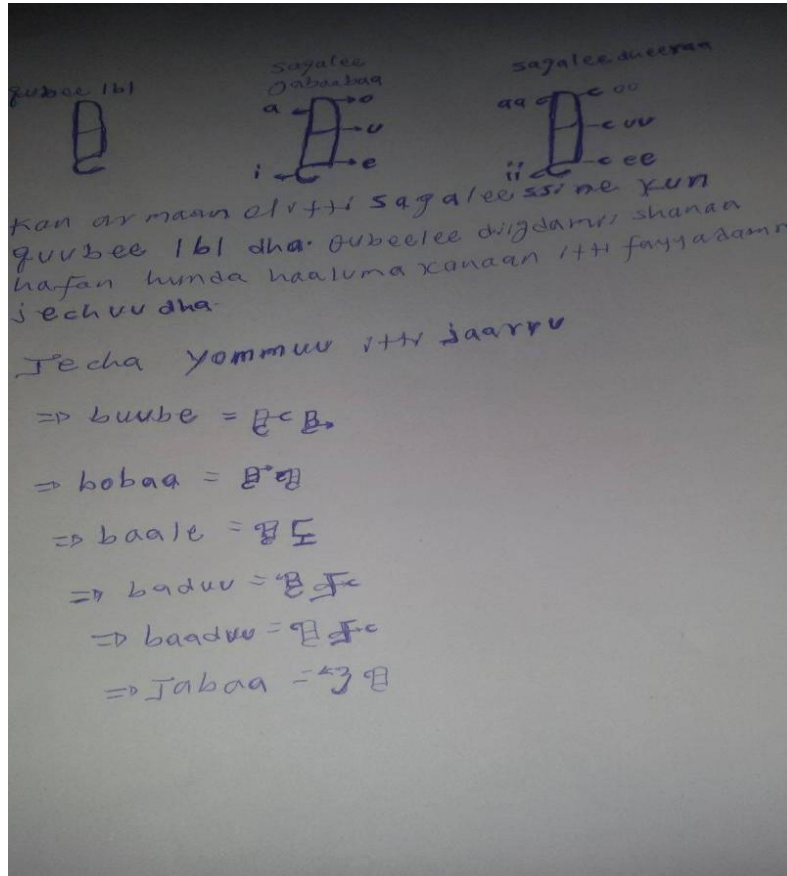 qubee lbl
sagalee
Gabaabaa
a o
u
i e
sagalee dheeraa
aa oo
uu
ii ee
Kan armaan olitti sagaleessine kun
quubee lbl dha. Qubeelee digdamii shanaa
hafan hunda haaluma kanaan itti fayyadamn
jechuu dha.
Jecha yommuu itti jaarru
=> buube =
=> bobaa =
=> baale =
=> baduu =
=> baaduu =
=> Jabaa =